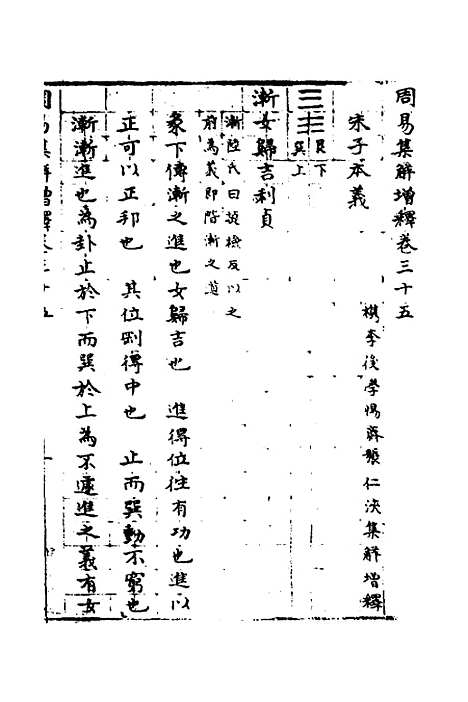 周易集解增釋卷三十五
檇李後學張獻翼仁浹集解增釋
朱子本義
艮下
巽上
漸女歸吉利貞
漸陸氏曰
前為義即階漸之道
彖下傳漸之進也女歸吉也 進得位往有功也進以
正可以正邦也 其位剛得中也 止而巽動不窮也
漸漸進也為卦止於下而巽於上為不遽進之義有女
周易集解增釋卷三十五